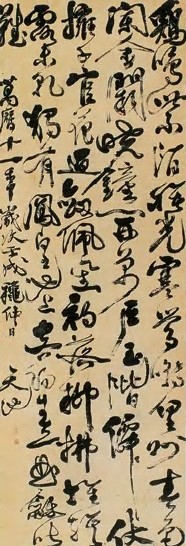 鷄鳴紫陌曙光寒鶯囀皇州春色
闌金闕曉鐘開萬戶玉階僊仗
擁千官花迎劍佩星初落柳拂旌旗
露未乾獨有鳳皇池上客陽春一曲龢皆
難
萬曆十一年歲次
天池